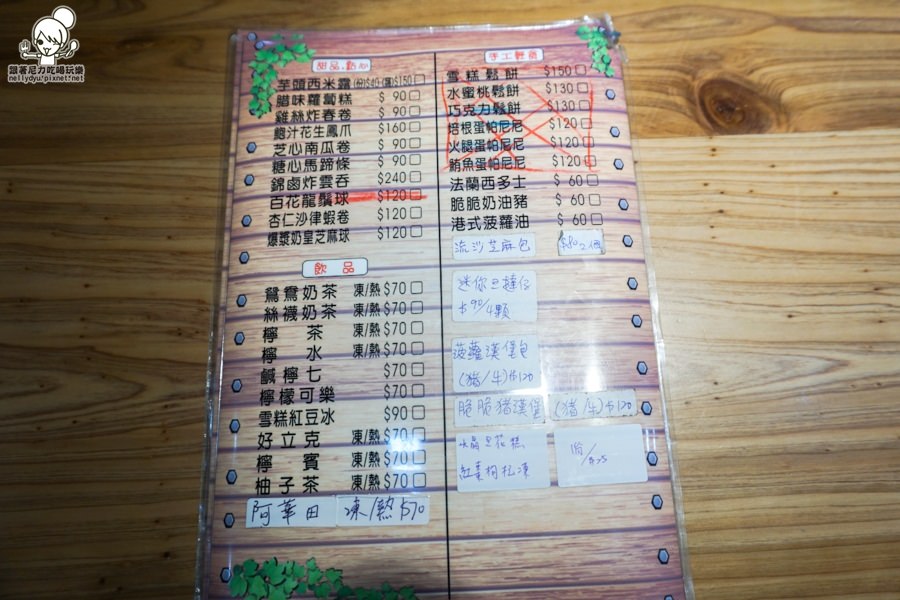 跟著尼力吃喝玩樂
nellydyu.pixnet.net
甜品.點心
芋頭西米露(份)$40(鍋)$150
腊味蘿蔔糕 $ 90
雞絲炸春卷 $ 90
鮑汁花生鳳爪 $160
芝心南瓜卷 $ 90
糖心馬蹄條 $ 90
錦鹵炸雲吞 $240
百花龍鬚球 $120
杏仁沙律蝦卷 $120
爆漿奶皇芝麻球 $120
飲品
鴛鴦奶茶 凍/熱 $70
絲襪奶茶 凍/熱 $70
檸茶 凍/熱 $70
檸水 凍/熱 $70
鹹檸七 $70
檸檬可樂 $70
雪糕紅豆冰 $90
好立克 凍/熱 $70
檸賓 凍/熱 $70
柚子茶 凍/熱 $70
阿華田 凍/熱 $70
手工輕食
雪糕鬆餅 $150
水蜜桃鬆餅 $130
巧克力鬆餅 $130
培根蛋帕尼尼 $120
火腿蛋帕尼尼 $120
鮪魚蛋帕尼尼 $120
法蘭西多士 $ 60
脆脆奶油豬 $ 60
港式菠蘿油 $ 60
流沙芝麻包 $80 2個
迷你旦撻仔
$90/4顆
菠蘿漢堡包
(豬/牛)$120
脆脆豬漢堡 (豬/牛)$120
水晶豆花糕
紅棗枸杞凍